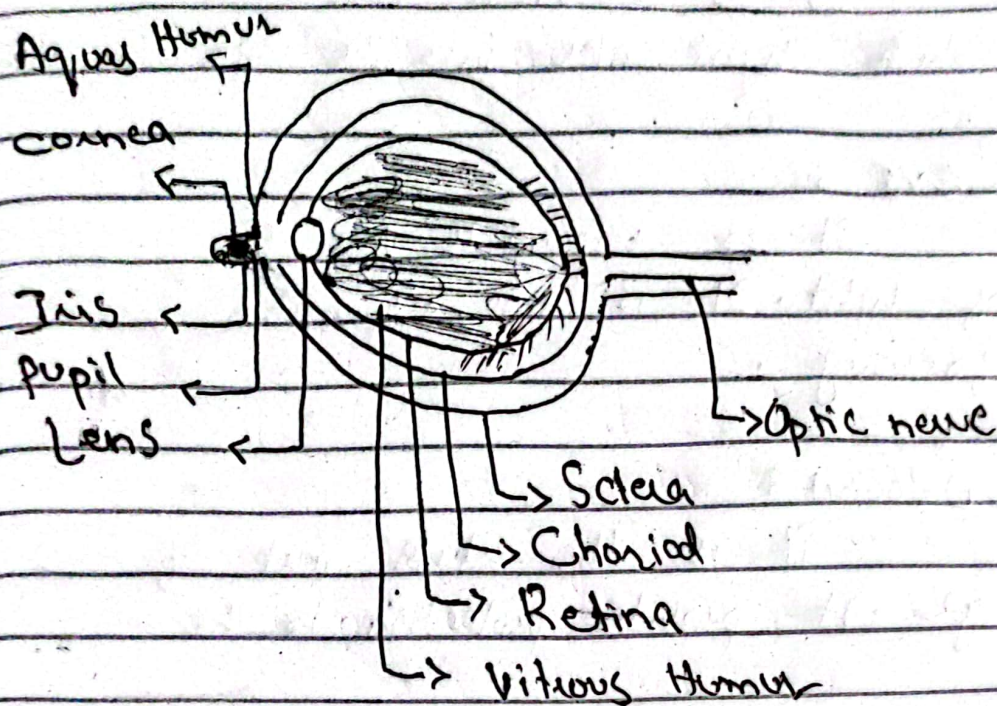 Aquas Humur
cornea
Iris
pupil
Lens
Optic nerve
Sclera
Choriod
Retina
Vitrous Humur